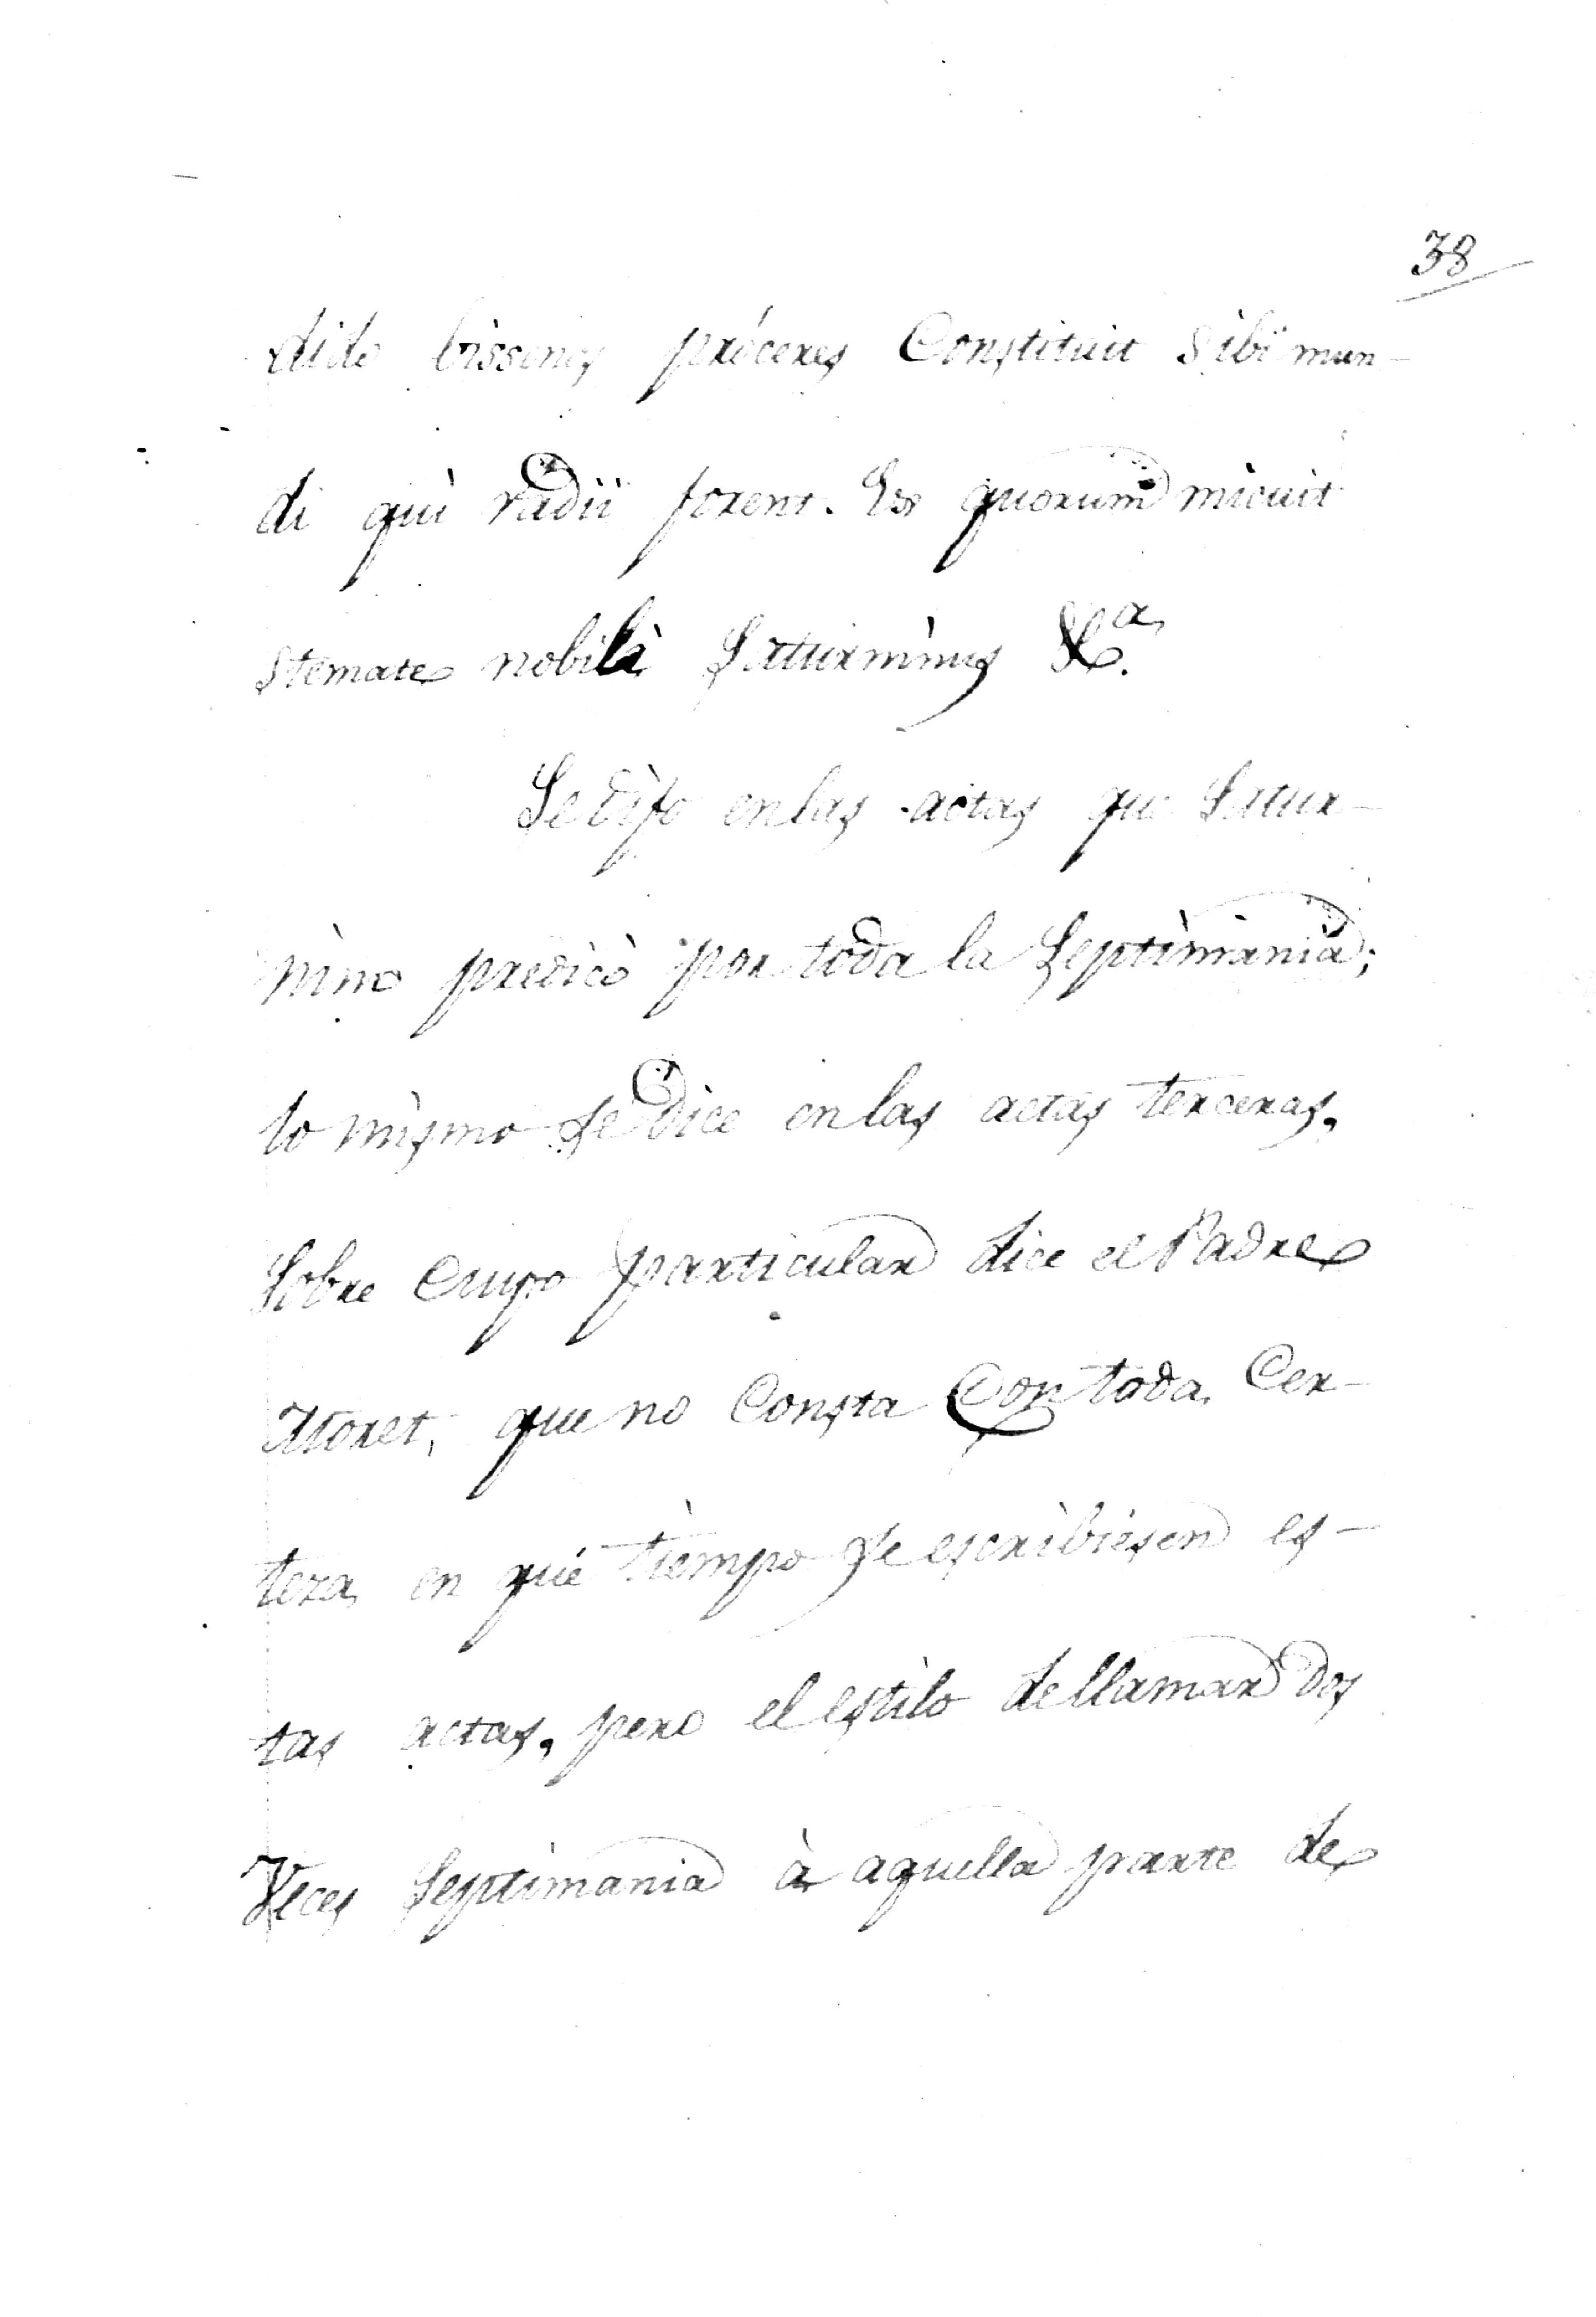 38
dido bissenos próceres Constituit Sibi mun-
di qui radii forent. Ex quorum micuit
Stemate nobili Saturninus &.ª
Se dijo en las actas que Satur-
nino predicó por toda la Septimania;
lo mismo se dice en las actas terceras,
Sobre Cuyo particular dice el Padre
Moret, que no Consta Con toda Cer-
teza en qué tiempo se escribiesen es-
tas actas, pero el estilo de llamar dos
Veces Septimania à aquella parte de